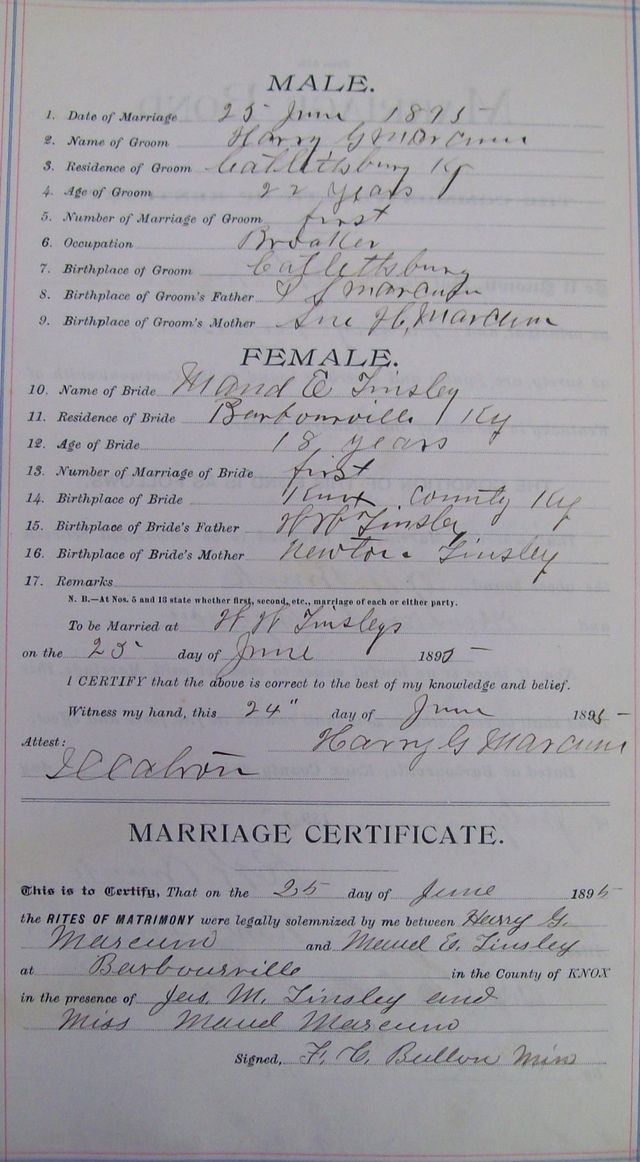 MALE.
1. Date of Marriage 25 June 1895
2. Name of Groom Harry G Marcum
3. Residence of Groom Catlettsburg Ky
4. Age of Groom 22 years
5. Number of Marriage of Groom first
6. Occupation Brooker
7. Birthplace of Groom Catlettsburg
8. Birthplace of Groom's Father Marcum
9. Birthplace of Groom's Mother Sue H. Marcum
FEMALE.
10. Name of Bride Maud E Tinsley
11. Residence of Bride Barbourville Ky
12. Age of Bride 18 years
13. Number of Marriage of Bride first
14. Birthplace of Bride Knox County Ky
15. Birthplace of Bride's Father W W Tinsley
16. Birthplace of Bride's Mother Tinsley
17. Remarks
N. B.—At Nos. 5 and 13 state whether first, second, etc., marriage of each or either party.
To be Married at W W Tinsleys
on the 25 day of June 1895
I CERTIFY that the above is correct to the best of my knowledge and belief.
Witness my hand, this 24" day of June 1895
Harry G Marcum
Attest:
MARRIAGE CERTIFICATE.
This is to Certify, That on the 25 day of June 1895
the RITES OF MATRIMONY were legally solemnized by me between Harry G.
Marcum and Maud E. Tinsley
at Barbourville in the County of KNOX
in the presence of Jas. M. Tinsley and
Miss Maud Marcum
Signed, F. C. Button Min